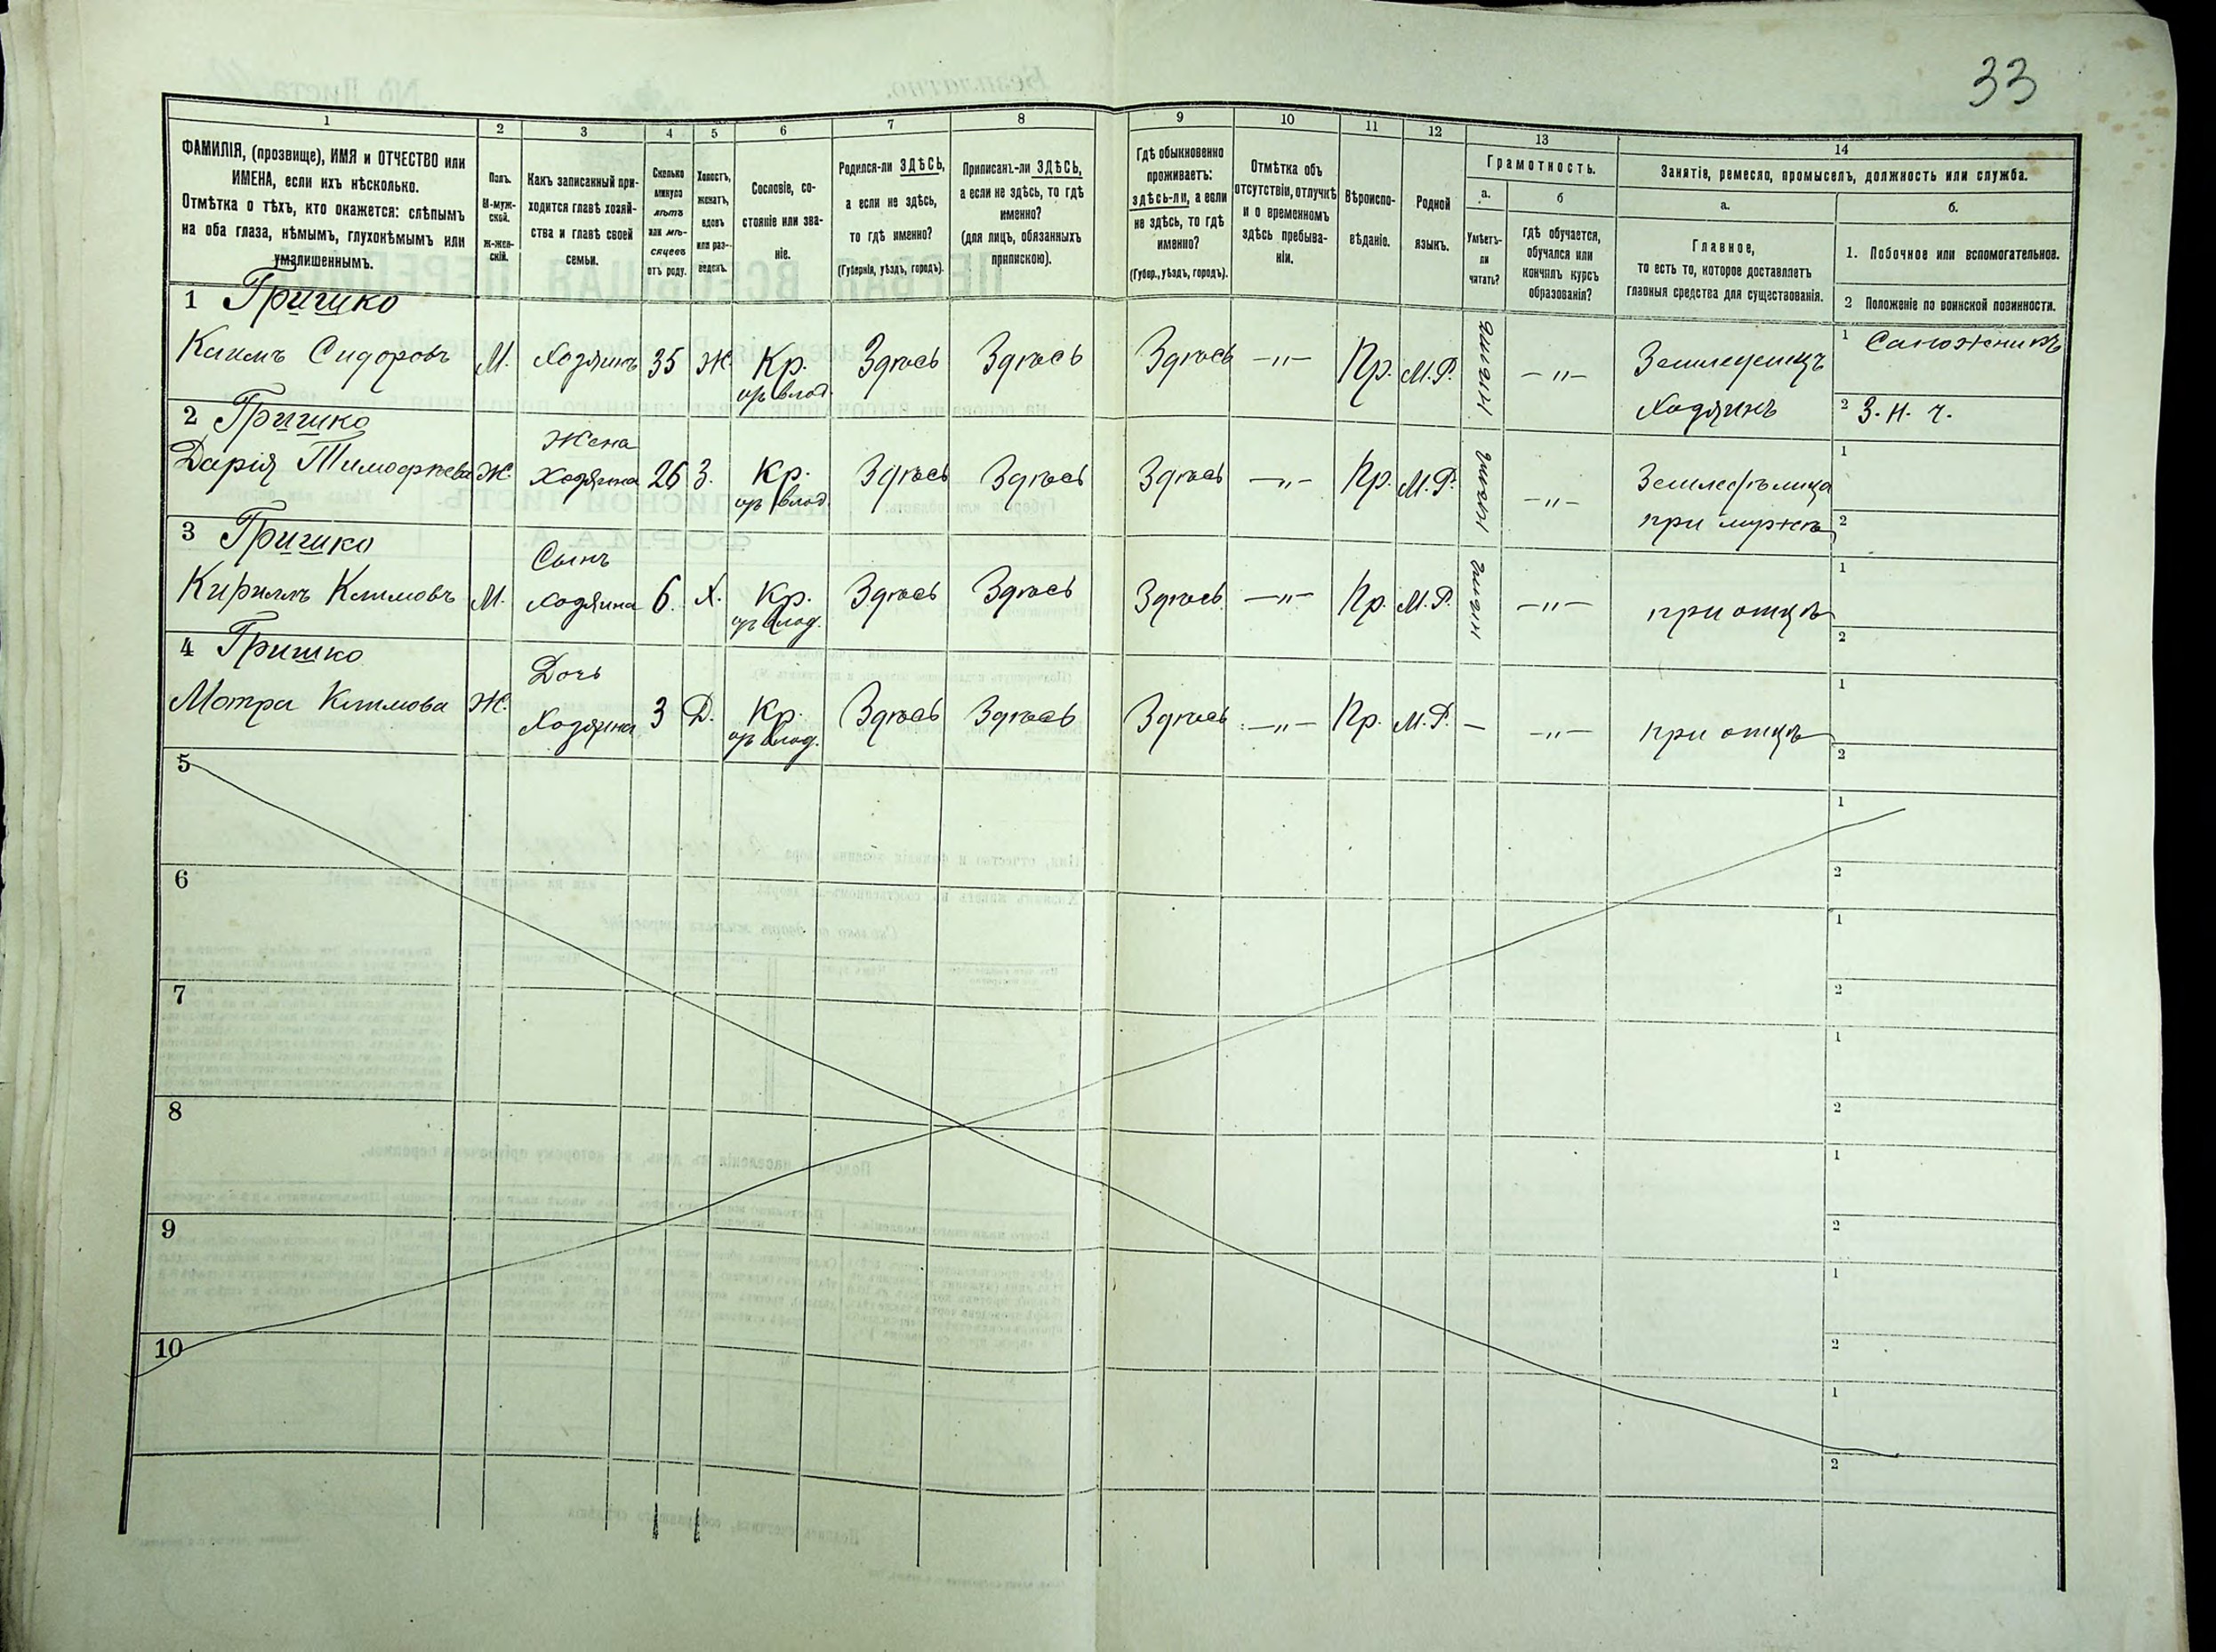 33
1
2
3
4
5
6
7
8
9
10
11
12
13
14
ФАМИЛІЯ, (прозвище), ИМЯ и ОТЧЕСТВО или
ИМЕНА, если ихъ нѣсколько.
Отмѣтка о тѣхъ, кто окажется: слѣпымъ
на оба глаза, нѣмымъ, глухонѣмымъ или
умалишеннымъ.
Полъ.
М-муж-
ской.
ж-жен-
скій.
Какъ записанный при-
ходится главѣ хозяй-
ства и главѣ своей
семьи.
Сколько
минуло
лѣтъ
или мѣ-
сяцевъ
отъ роду.
Холостъ,
женатъ,
вдовъ
или раз-
веденъ.
Сословіе, со-
стояніе или зва-
ніе.
Родился-ли ЗДѢСЬ,
а если не здѣсь,
то гдѣ именно?
(Губернія, уѣздъ, городъ).
Приписанъ-ли ЗДѢСЬ,
а если не здѣсь, то гдѣ
именно?
(для лицъ, обязанныхъ
припискою).
Гдѣ обыкновенно
проживаетъ:
здѣсь-ли, а если
не здѣсь, то гдѣ
именно?
(Губер., уѣздъ, городъ).
Отмѣтка объ
отсутствіи, отлучкѣ
и о временномъ
здѣсь пребыва-
ніи.
Вѣроиспо-
вѣданіе.
Родной
языкъ.
Грамотность.
а.
Умѣетъ-
ли
читать?
б
гдѣ обучается,
обучался или
кончилъ курсъ
образованія?
Занятіе, ремесло, промыселъ, должность или служба.
а.
Главное,
то есть то, которое доставляетъ
главныя средства для существованія.
б.
1. Побочное или вспомогательное.
2 Положеніе по воинской повинности.
1 Гришко
Климъ Сидоровъ М. Хозяинъ 35 Ж. Кр. Здѣсь Здѣсь Здѣсь —"— Пр. М.Р. —"— Земледелецъ 1 Сапожникъ
Хозяинъ 2 З. Н. Ч.
2 Гришко
Жена
Дарія Тимофѣева Ж. Хозяина 26 З. Кр. Здѣсь Здѣсь Здѣсь —"— Пр. М.Р. —"— 1
при мужѣ 2
3 Гришко
Сынъ
Кириллъ Климовъ М. Хозяина 6. Х. Кр. Здѣсь Здѣсь Здѣсь —"— Пр. М.Р. —"— при отцѣ 1
2
4 Гришко
Дочь
Мотра Климова Ж. Хозяина 3 Д. Кр. Здѣсь Здѣсь Здѣсь —"— Пр. М.Р. — —"— при отцѣ 1
2
5 1
2
6 1
2
7 1
2
8 1
2
9 1
2
10 1
2